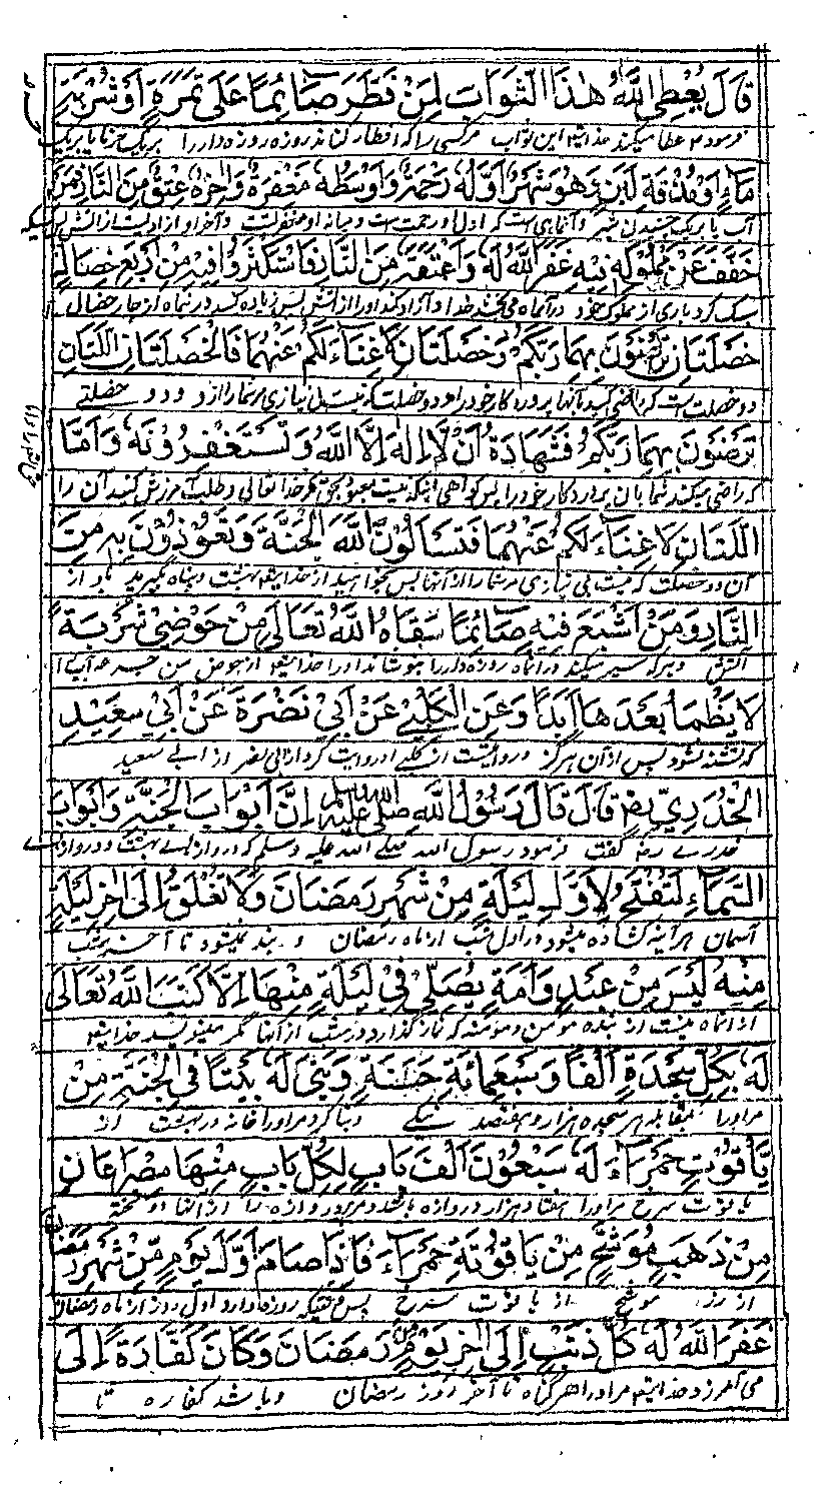 قَالَ يُعْطِي اللَّهُ هٰذَا الثَّوَابَ لِمَنْ فَطَّرَ صَائِمًا عَلَى تَمْرَةٍ أَوْ شَرْبَةِ
فرمود عطا میکند خدایتعالی این ثواب مر کسی را که افطار کناند روزه روزه دار را بر یک خرما یا بر یک
مَاءٍ أَوْ مُذْقَةِ لَبَنٍ وَهُوَ شَهْرٌ أَوَّلُهُ رَحْمَةٌ وَأَوْسَطُهُ مَغْفِرَةٌ وَآخِرُهُ عِتْقٌ مِنَ النَّارِ فَمَنْ
آب یا بر یک چشیدن شیر و آنماهی است که اول او رحمت است و میانه او مغفرتست و آخر او آزادیست از آتش
خَفَّفَ عَنْ مَمْلُوكِهِ فِيهِ غَفَرَ اللَّهُ لَهُ وَأَعْتَقَهُ مِنَ النَّارِ فَاسْتَكْثِرُوا فِيهِ مِنْ أَرْبَعِ خِصَالٍ
سبک کرد باری از مملوک خود در آنماه می بخشد خدا و آزاد کند او را از آتش پس زیاده کنید در نماه از چار خصال
خَصْلَتَانِ تُرْضُونَ بِهِمَا رَبَّكُمْ وَخَصْلَتَانِ لَا غِنَاءَ لَكُمْ عَنْهُمَا فَالْخَصْلَتَانِ اللَّتَانِ
دو خصلت است که راضی کنید بآنها پروردگار خود را و دو خصلت که نیست بی نیازی مر شما را از و دو خصلتی
تُرْضُونَ بِهِمَا رَبَّكُمْ فَشَهَادَةُ أَنْ لَا إِلٰهَ إِلَّا اللَّهُ وَتَسْتَغْفِرُونَهُ وَأَمَّا
که راضی میکنید شما بآن پروردگار خود را پس گواهی اینکه نیست معبود بحق مگر خدا تعالی و طلب آمرزش کنید آن را
اللَّتَانِ لَا غِنَاءَ لَكُمْ عَنْهُمَا فَتَسْأَلُونَ اللَّهَ الْجَنَّةَ وَتَعُوذُونَ بِهِ مِنَ
آن دو خصلت که نیست بی نیازی مر شما را از آنها پس بخواهید از خدایتعالی بهشت و پناه بگیرید باو از
النَّارِ وَمَنْ أَشْبَعَ فِيهِ صَائِمًا سَقَاهُ اللَّهُ تَعَالَى مِنْ حَوْضِي شَرْبَةً
آتش و هر که سیر میکند در آنماه روزه دار را بنوشاند او را خدایتعالی از حوض من
لَا يَظْمَأُ بَعْدَهَا أَبَدًا وَعَنِ الْكَلْبِيِّ عَنْ أَبِي نَضْرَةَ عَنْ أَبِي سَعِيدٍ
که تشنه نشود پس از آن هرگز و روایتست از کلبی او روایت کرد از ابی نضر از ابی سعید
الْخُدْرِيِّ رض قَالَ قَالَ رَسُولُ اللَّهِ صَلَّى اللَّهُ عَلَيْهِ وَسَلَّمَ إِنَّ أَبْوَابَ الْجَنَّةِ وَأَبْوَابَ
خدری رض گفت فرمود رسول الله صلی الله علیه وسلم که دروازهای بهشت و دروازهای
السَّمَاءِ لَتُفْتَحُ لِأَوَّلِ لَيْلَةٍ مِنْ شَهْرِ رَمَضَانَ وَلَا تُغْلَقُ إِلَى آخِرِ لَيْلَةٍ
آسمان هر آینه کشاده میشود در اول شب از ماه رمضان و بند نمیشود تا آخر شب
مِنْهُ لَيْسَ مِنْ عَبْدٍ وَأَمَةٍ يُصَلِّي فِي لَيْلَةٍ مِنْهَا إِلَّا كَتَبَ اللَّهُ تَعَالَى
از انماه نیست از بنده مومن و مومنه که نماز گذارد در شب از آنها مگر مینویسد خدایتعالی
لَهُ بِكُلِّ سَجْدَةٍ أَلْفًا وَسَبْعَمِائَةِ حَسَنَةٍ وَبَنَى لَهُ بَيْتًا فِي الْجَنَّةِ مِنْ
مر او را بمقابله هر سجده هزار و هفتصد نیکی و بنا کرد مر او را خانه در بهشت از
يَاقُوتٍ حَمْرَاءَ لَهُ سَبْعُونَ أَلْفَ بَابٍ لِكُلِّ بَابٍ مِنْهَا مِصْرَاعَانِ
یاقوت سرخ مر او را هفتاد هزار دروازه باشد و مر هر دروازه را از آنها دو تخته
مِنْ ذَهَبٍ مُوَشَّحٍ مِنْ يَاقُوتَةٍ حَمْرَاءَ فَإِذَا صَامَ أَوَّلَ يَوْمٍ مِنْ شَهْرِ رَمَضَانَ
از زر موشح از یاقوت سرخ پس وقتیکه روزه دارد اول روز از ماه رمضان
غَفَرَ اللَّهُ لَهُ كُلَّ ذَنْبٍ إِلَى آخِرِ يَوْمٍ مِنْ رَمَضَانَ وَكَانَ كَفَّارَةً إِلَى
می آمرزد خدایتعالی مر او را هر گناه تا آخر روز رمضان و باشد کفاره تا